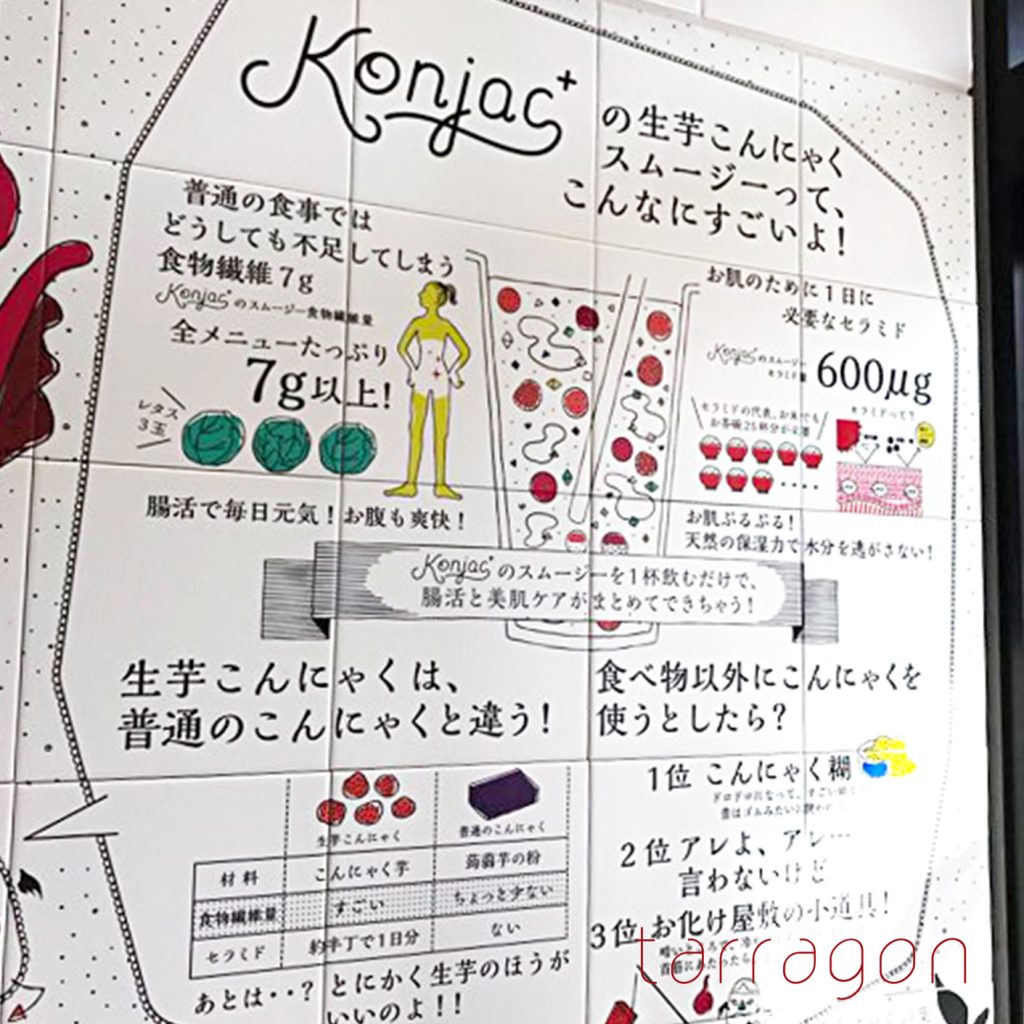 Konjac+
の生芋こんにゃく
スムージーって、
こんなにすごいよ!
普通の食事では
どうしても不足してしまう
食物繊維7g
Konjac+のスムージー食物繊維量
全メニューたっぷり
7g以上!
レタス
3玉
腸活で毎日元気!お腹も爽快!
お肌のために1日に
必要なセラミド
Konjac+のスムージー
セラミド量
600μg
セラミドの代表、お米でも
お茶碗25杯分が必要
セラミドって?
お肌ぷるぷる!
天然の保湿力で水分を逃がさない!
Konjac+のスムージーを1杯飲むだけで、
腸活と美肌ケアがまとめてできちゃう!
生芋こんにゃくは、
普通のこんにゃくと違う!
生芋こんにゃく 普通のこんにゃく
材料 こんにゃく芋 蒟蒻芋の粉
食物繊維量 すごい ちょっと少ない
セラミド 約半丁で1日分 ない
あとは・・?とにかく生芋のほうが
いいのよ!!
食べ物以外にこんにゃくを
使うとしたら?
1位 こんにゃく糊
ドロドロになって、すごい
昔はゴムみたいに
2位 アレよ、アレ…
言わないけど
3位 お化け屋敷の小道具!
首筋にあたったら
tarragon